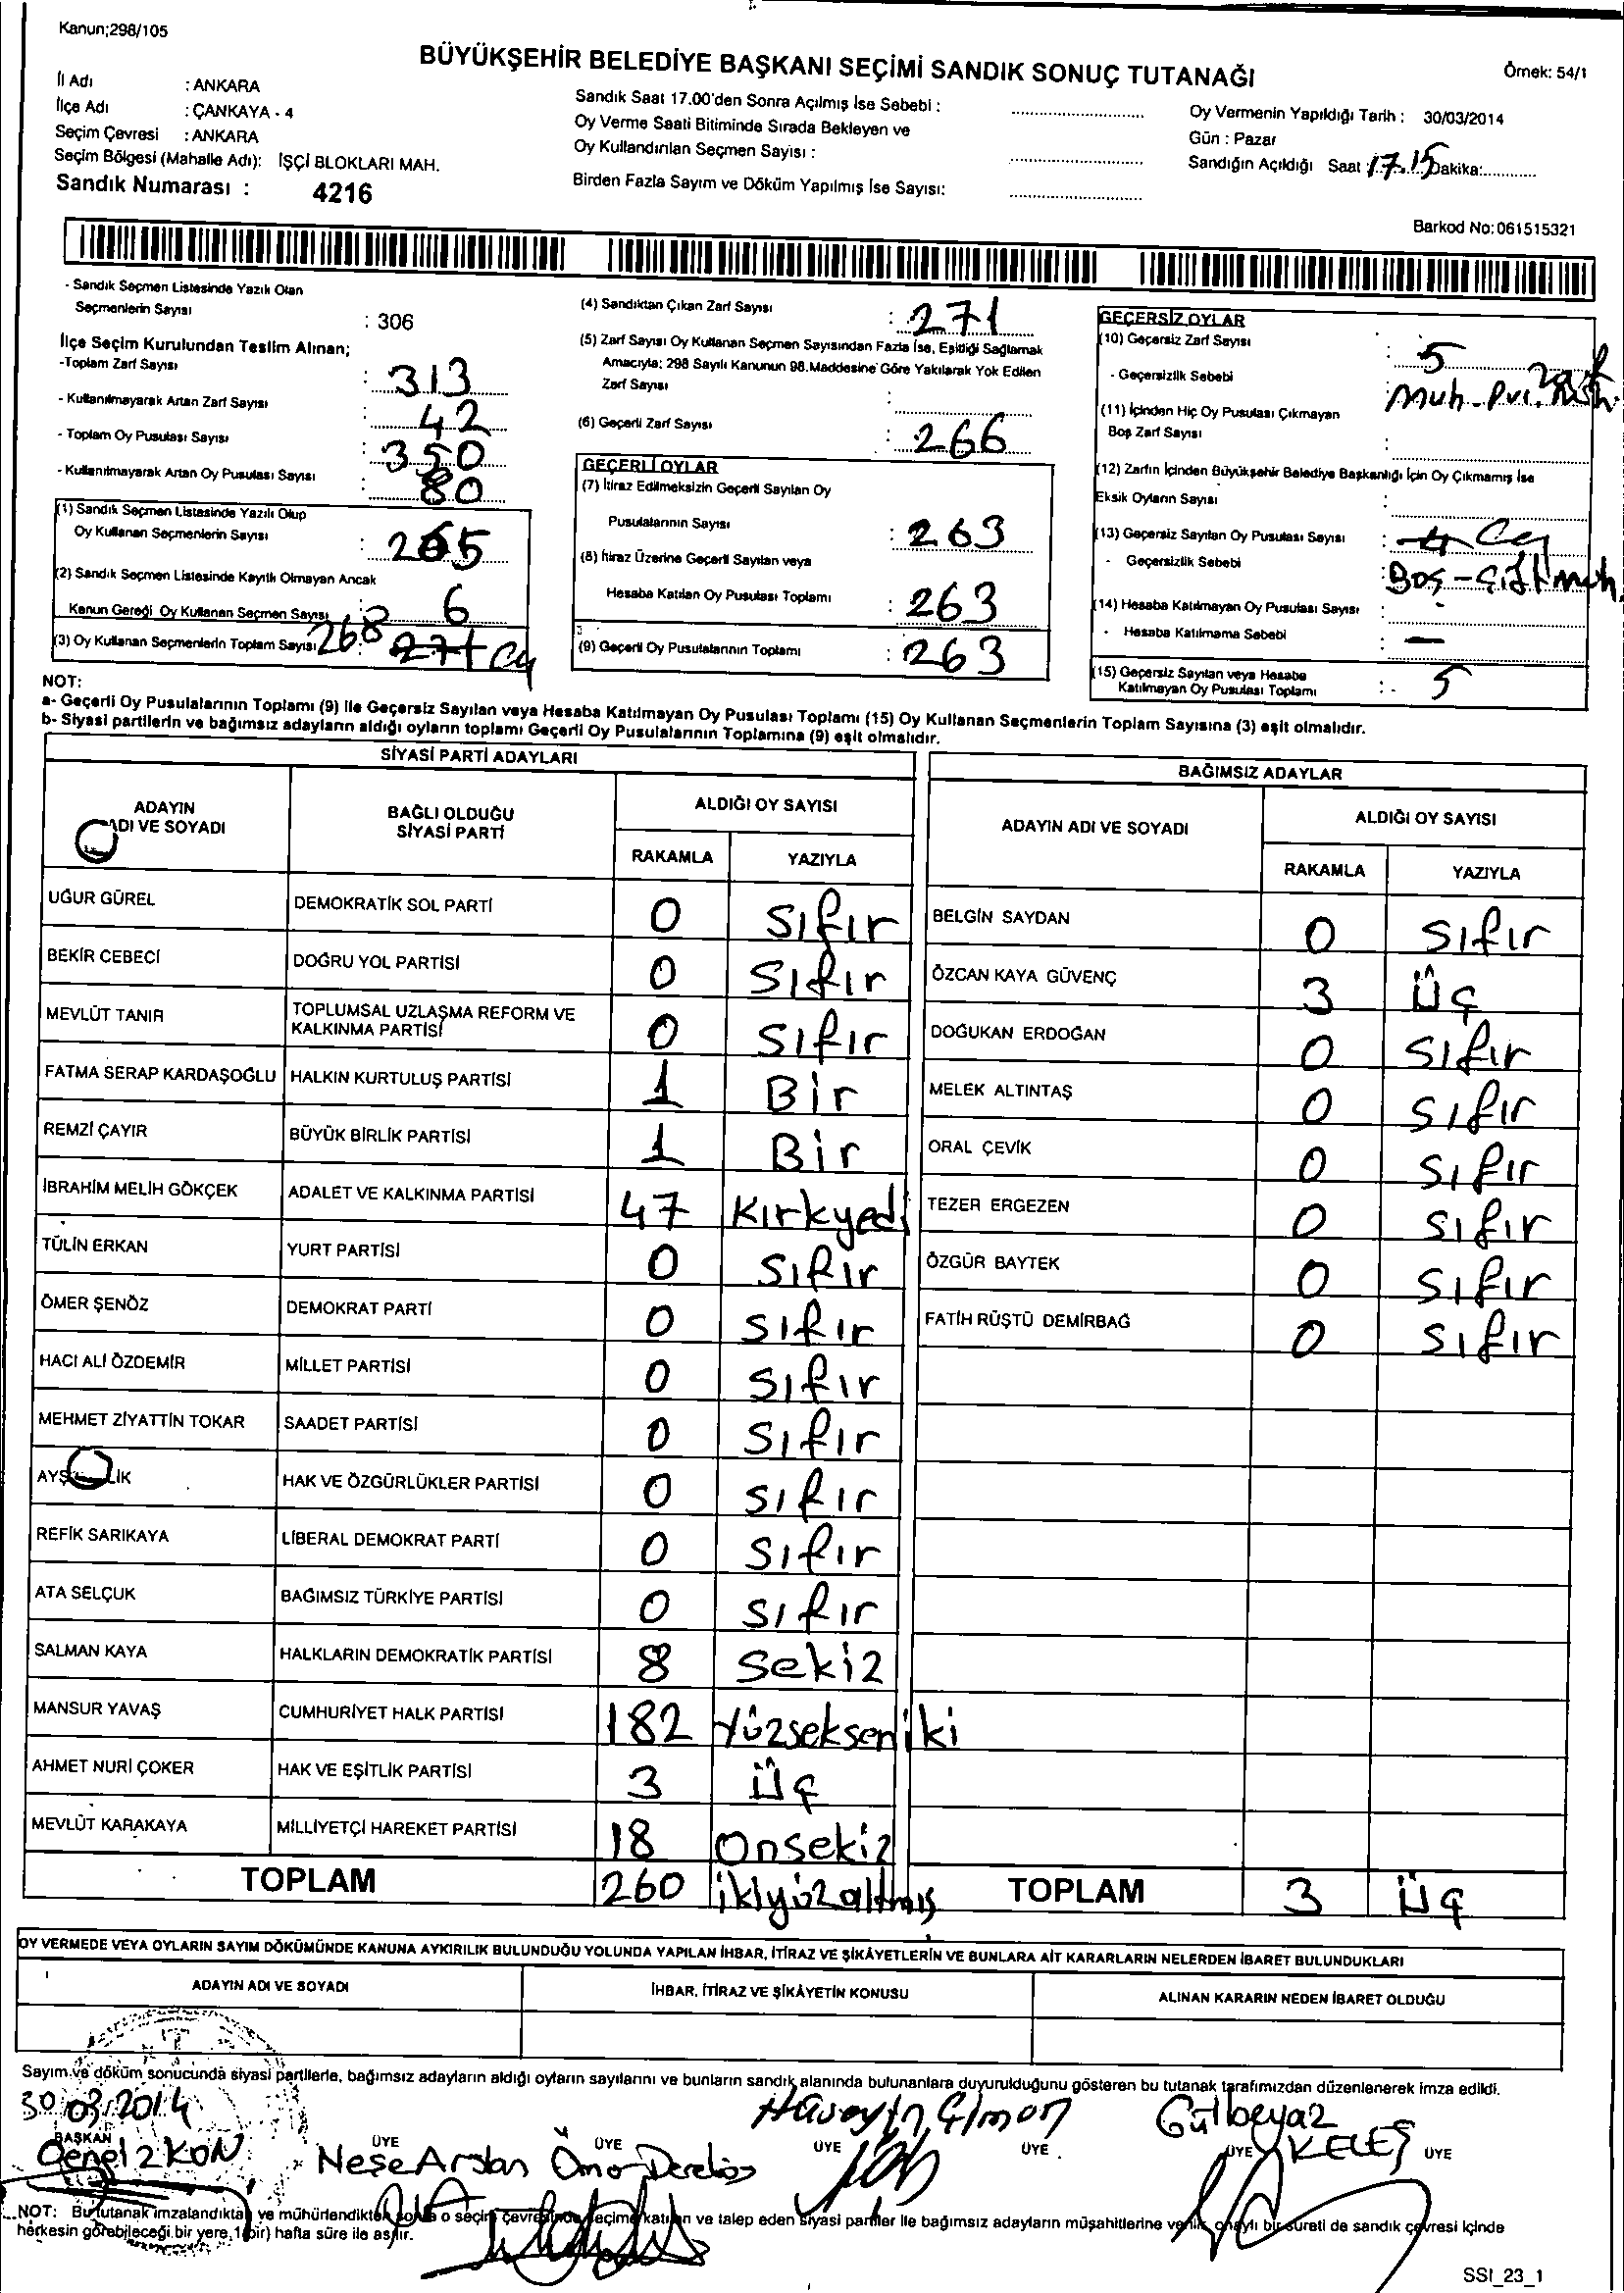 Kanun;298/105
BÜYÜKŞEHİR BELEDİYE BAŞKANI SEÇİMİ SANDIK SONUÇ TUTANAĞI
Örnek: 54/1
İl Adı : ANKARA
İlçe Adı : ÇANKAYA - 4
Seçim Çevresi : ANKARA
Seçim Bölgesi (Mahalle Adı): İŞÇİ BLOKLARI MAH.
Sandık Numarası : 4216
Sandık Saat 17.00'den Sonra Açılmış İse Sebebi :
Oy Verme Saati Bitiminde Sırada Bekleyen ve
Oy Kullandırılan Seçmen Sayısı :
Birden Fazla Sayım ve Döküm Yapılmış İse Sayısı:
Oy Vermenin Yapıldığı Tarih : 30/03/2014
Gün : Pazar
Sandığın Açıldığı Saat : 17.15 Dakika:
Barkod No:061515321
- Sandık Seçmen Listesinde Yazılı Olan
Seçmenlerin Sayısı : 306
İlçe Seçim Kurulundan Teslim Alınan;
-Toplam Zarf Sayısı : 313
- Kullanılmayarak Artan Zarf Sayısı : 42
- Toplam Oy Pusulası Sayısı : 350
- Kullanılmayarak Artan Oy Pusulası Sayısı : 80
(1) Sandık Seçmen Listesinde Yazılı Olup
Oy Kullanan Seçmenlerin Sayısı : 265
(2) Sandık Seçmen Listesinde Kayıtlı Olmayan Ancak
Kanun Gereği Oy Kullanan Seçmen Sayısı : 6
(3) Oy Kullanan Seçmenlerin Toplam Sayısı : 268 271
(4) Sandıktan Çıkan Zarf Sayısı : 271
(5) Zarf Sayısı Oy Kullanan Seçmen Sayısından Fazla İse, Eşitliği Sağlamak
Amacıyla; 298 Sayılı Kanunun 98.Maddesine Göre Yakılarak Yok Edilen
Zarf Sayısı :
(6) Geçerli Zarf Sayısı : 266
GEÇERLİ OYLAR
(7) İtiraz Edilmeksizin Geçerli Sayılan Oy
Pusulalarının Sayısı : 263
(8) İtiraz Üzerine Geçerli Sayılan veya
Hesaba Katılan Oy Pusulası Toplamı : 263
(9) Geçerli Oy Pusulalarının Toplamı : 263
GEÇERSİZ OYLAR
(10) Geçersiz Zarf Sayısı : 5
- Geçersizlik Sebebi
(11) İçinden Hiç Oy Pusulası Çıkmayan
Boş Zarf Sayısı :
(12) Zarfın İçinden Büyükşehir Belediye Başkanlığı İçin Oy Çıkmamış İse
Eksik Oyların Sayısı :
(13) Geçersiz Sayılan Oy Pusulası Sayısı :
- Geçersizlik Sebebi : Boş -
(14) Hesaba Katılmayan Oy Pusulası Sayısı : -
- Hesaba Katılmama Sebebi : -
(15) Geçersiz Sayılan veya Hesaba
Katılmayan Oy Pusulası Toplamı : 5
NOT:
a- Geçerli Oy Pusulalarının Toplamı (9) ile Geçersiz Sayılan veya Hesaba Katılmayan Oy Pusulası Toplamı (15) Oy Kullanan Seçmenlerin Toplam Sayısına (3) eşit olmalıdır.
b- Siyasi partilerin ve bağımsız adayların aldığı oyların toplamı Geçerli Oy Pusulalarının Toplamına (9) eşit olmalıdır.
SİYASİ PARTİ ADAYLARI
ADAYIN ADI VE SOYADI
BAĞLI OLDUĞU SİYASİ PARTİ
ALDIĞI OY SAYISI
RAKAMLA YAZIYLA
UĞUR GÜREL DEMOKRATİK SOL PARTİ 0 Sıfır
BEKİR CEBECİ DOĞRU YOL PARTİSİ 0 Sıfır
MEVLÜT TANIR TOPLUMSAL UZLAŞMA REFORM VE KALKINMA PARTİSİ 0 Sıfır
FATMA SERAP KARDAŞOĞLU HALKIN KURTULUŞ PARTİSİ 1 Bir
REMZİ ÇAYIR BÜYÜK BİRLİK PARTİSİ 1 Bir
İBRAHİM MELİH GÖKÇEK ADALET VE KALKINMA PARTİSİ 47 Kırkyedi
TÜLİN ERKAN YURT PARTİSİ 0 Sıfır
ÖMER ŞENÖZ DEMOKRAT PARTİ 0 Sıfır
HACI ALİ ÖZDEMİR MİLLET PARTİSİ 0 Sıfır
MEHMET ZİYATTİN TOKAR SAADET PARTİSİ 0 Sıfır
HAK VE ÖZGÜRLÜKLER PARTİSİ 0 Sıfır
REFİK SARIKAYA LİBERAL DEMOKRAT PARTİ 0 Sıfır
ATA SELÇUK BAĞIMSIZ TÜRKİYE PARTİSİ 0 Sıfır
SALMAN KAYA HALKLARIN DEMOKRATİK PARTİSİ 8 Sekiz
MANSUR YAVAŞ CUMHURİYET HALK PARTİSİ 182 Yüzsekseniki
AHMET NURİ ÇOKER HAK VE EŞİTLİK PARTİSİ 3 Üç
MEVLÜT KARAKAYA MİLLİYETÇİ HAREKET PARTİSİ 18 Onsekiz
TOPLAM 260 ikiyüzaltmış
BAĞIMSIZ ADAYLAR
ADAYIN ADI VE SOYADI
ALDIĞI OY SAYISI
RAKAMLA YAZIYLA
BELGİN SAYDAN 0 Sıfır
ÖZCAN KAYA GÜVENÇ 3 Üç
DOĞUKAN ERDOĞAN 0 Sıfır
MELEK ALTINTAŞ 0 Sıfır
ORAL ÇEVİK 0 Sıfır
TEZER ERGEZEN 0 Sıfır
ÖZGÜR BAYTEK 0 Sıfır
FATİH RÜŞTÜ DEMİRBAĞ 0 Sıfır
TOPLAM 3 Üç
OY VERMEDE VEYA OYLARIN SAYIM DÖKÜMÜNDE KANUNA AYKIRILIK BULUNDUĞU YOLUNDA YAPILAN İHBAR, İTİRAZ VE ŞİKÂYETLERİN VE BUNLARA AİT KARARLARIN NELERDEN İBARET BULUNDUKLARI
ADAYIN ADI VE SOYADI
İHBAR, İTİRAZ VE ŞİKÂYETİN KONUSU
ALINAN KARARIN NEDEN İBARET OLDUĞU
Sayım ve döküm sonucunda siyasi partilerle, bağımsız adayların aldığı oyların sayılarını ve bunların sandık alanında bulunanlara duyurulduğunu gösteren bu tutanak tarafımızdan düzenlenerek imza edildi.
30/03/2014
BAŞKAN ÜYE ÜYE ÜYE ÜYE ÜYE ÜYE
Neşe Arslan
Gülbeyaz KELEŞ
NOT: Bu tutanak imzalandıktan ve mühürlendikten sonra o seçim çevresinde seçime katılan ve talep eden siyasi partiler ile bağımsız adayların müşahitlerine verilir, onaylı bir sureti de sandık çevresi içinde
herkesin görebileceği bir yere 1(bir) hafta süre ile asılır.
SSI_23_1